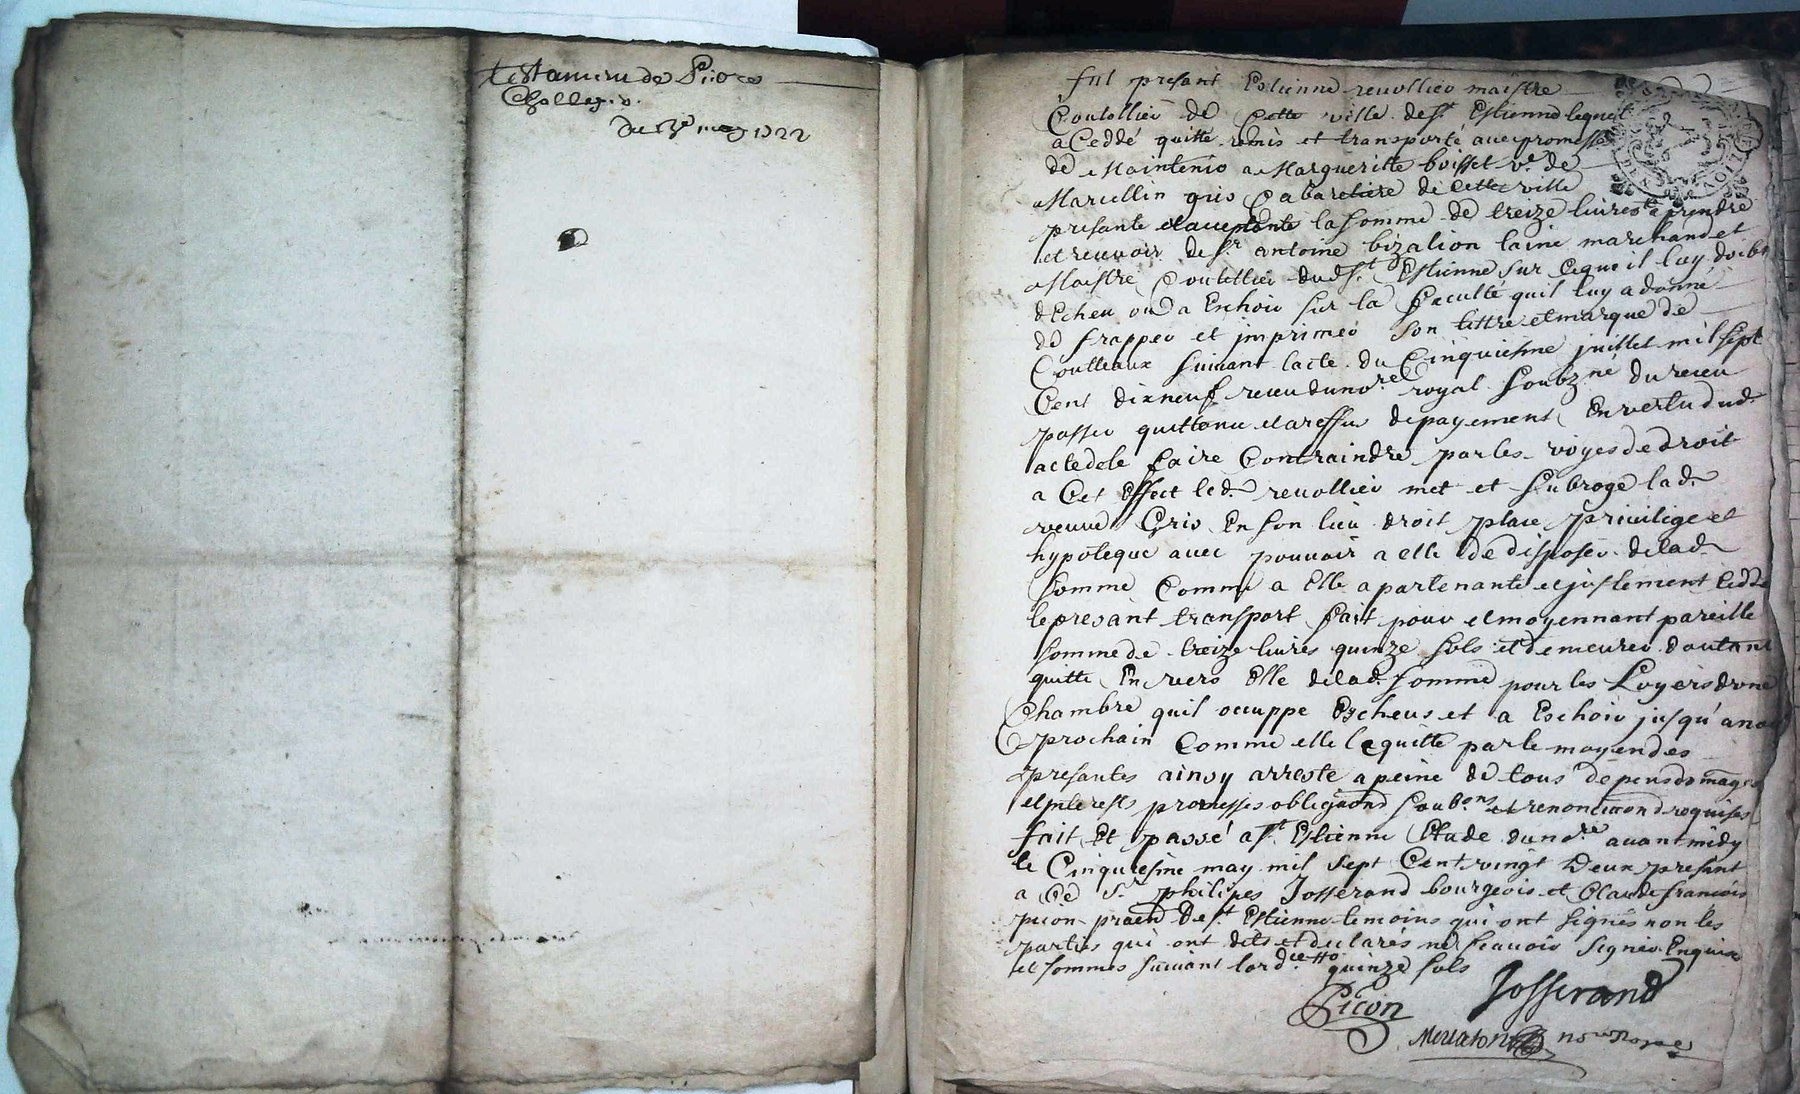 testament de Piere
Chollet
du 5e may 1722
fut presant Estienne reuollier maistre
Coutollier de Cette ville de st Estienne lequel
a Ceddé quitté remis et transporté auec promesse
de Maintenir a Margueritte boisset ve de
Marcellin gris Cabaretiere de Cette ville
presante et acceptante la somme de treize liures a prendre
et receuoir de sr antoine bizalion laine marchand et
Maistre Coutellier dud st Estienne sur Ceque il luy doibt
decheu ou a Eschoir sur la faculté quil luy a donné
de frapper et jmprimer son lettre et marque de
Coutteaux suiuant lacte du Cinquiesme juillet mil sept
Cent dixneuf receu du nore royal soubzné du receu
passer quittance et a reffus de payement En vertu dud
acte de le faire Contraindre par les voyes de droit
a Cet Effect led reuollier met et subroge lad
veuue Gris En son lieu droit place priuilege et
hypoteque auec pouuoir a elle de disposer de lad
somme Comme a Elle apartenante et justement Cedde
le presant transport fait pour et moyennant pareille
somme de treize liures quinze sols et demeurer dautant
quitte En vers Elle de lad somme pour les Loyers dvne
Chambre quil occuppe Escheus et a Eschoir jusqu'a
prochain Comme elle le quitte par le moyen des
presantes ainsy arresté a peine de tous depens domages
et jnterests promesses obligaond soubons et renonciaond requises
fait Et passé a st Estienne Etude du nore auant midy
le Cinquiesme may mil sept Cent vingt Deux presant
a Ce sr philipes Josserand bourgeois et Claude francois
picon praen De st Estienne temoins qui ont signés non les
parties qui ont dits et declarés ne scauoir signer Enquis
et sommes suiuant lord quinze sols
Picon Josserand
nore Royal